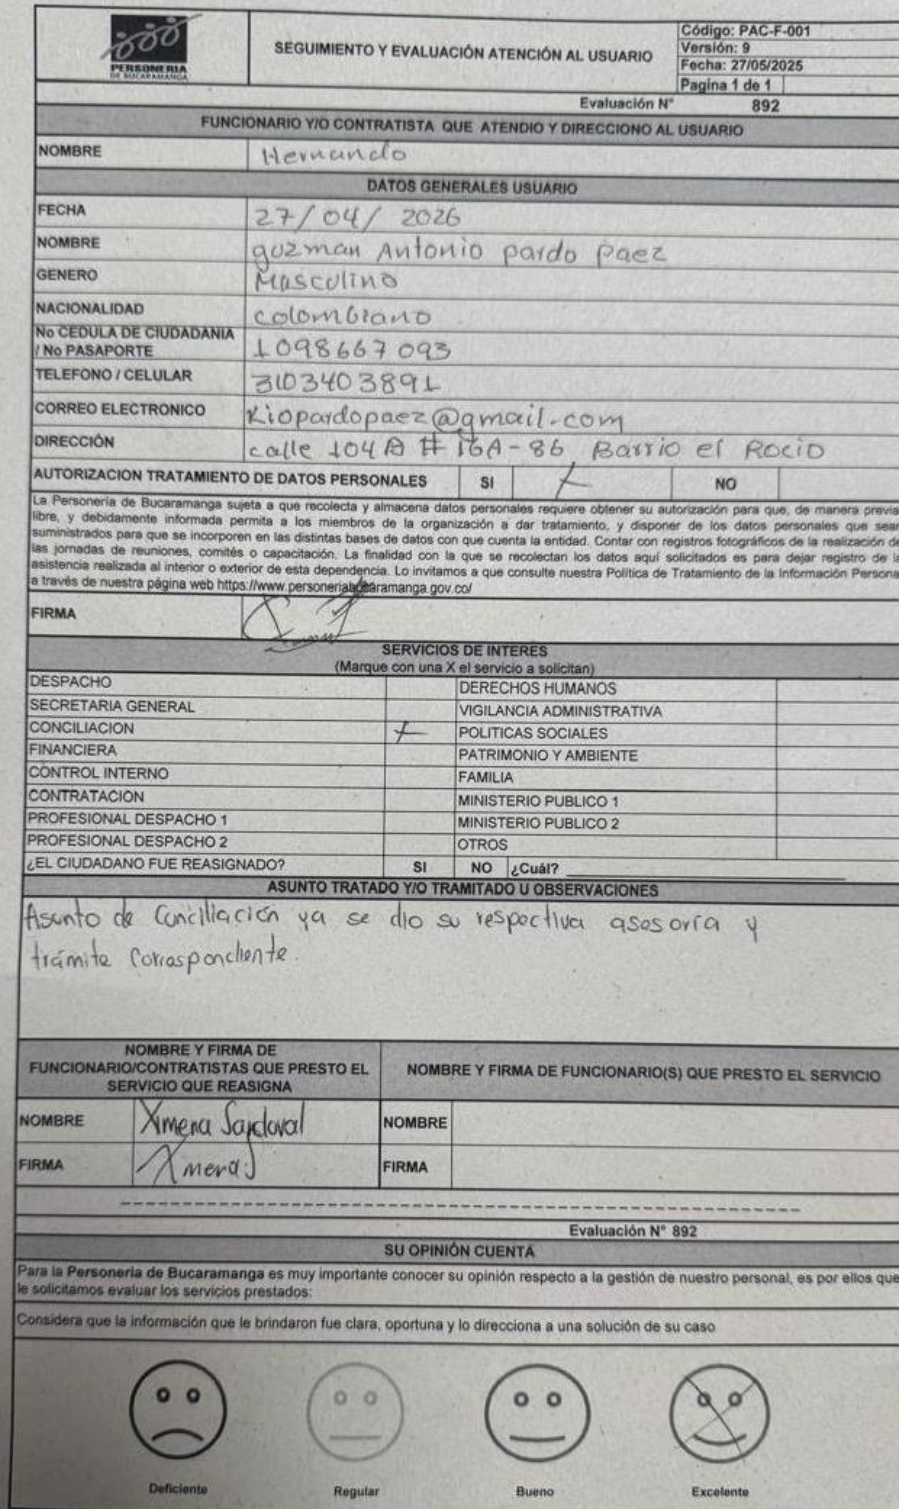 PERSONERIA
DE BUCARAMANGA
SEGUIMIENTO Y EVALUACIÓN ATENCIÓN AL USUARIO
Código: PAC-F-001
Versión: 9
Fecha: 27/05/2025
Pagina 1 de 1
Evaluación N° 892
FUNCIONARIO Y/O CONTRATISTA QUE ATENDIO Y DIRECCIONO AL USUARIO
NOMBRE Hernando
DATOS GENERALES USUARIO
FECHA 27/04/2026
NOMBRE guzman Antonio pardo paez
GENERO Masculino
NACIONALIDAD colombiano
No CEDULA DE CIUDADANIA
/ No PASAPORTE 1098667093
TELEFONO / CELULAR 3103403891
CORREO ELECTRONICO Kiopardopaez@gmail.com
DIRECCIÓN calle 104A # 16A-86 Barrio el Rocio
AUTORIZACION TRATAMIENTO DE DATOS PERSONALES SI X NO
La Personería de Bucaramanga sujeta a que recolecta y almacena datos personales requiere obtener su autorización para que, de manera previa
libre, y debidamente informada permita a los miembros de la organización a dar tratamiento, y disponer de los datos personales que sean
suministrados para que se incorporen en las distintas bases de datos con que cuenta la entidad. Contar con registros fotográficos de la realización de
las jornadas de reuniones, comités o capacitación. La finalidad con la que se recolectan los datos aquí solicitados es para dejar registro de la
asistencia realizada al interior o exterior de esta dependencia. Lo invitamos a que consulte nuestra Política de Tratamiento de la Información Persona
a través de nuestra página web https://www.personeriabucaramanga.gov.co/
FIRMA
SERVICIOS DE INTERES
(Marque con una X el servicio a solicitan)
DESPACHO DERECHOS HUMANOS
SECRETARIA GENERAL VIGILANCIA ADMINISTRATIVA
CONCILIACION X POLITICAS SOCIALES
FINANCIERA PATRIMONIO Y AMBIENTE
CONTROL INTERNO FAMILIA
CONTRATACION MINISTERIO PUBLICO 1
PROFESIONAL DESPACHO 1 MINISTERIO PUBLICO 2
PROFESIONAL DESPACHO 2 OTROS
¿EL CIUDADANO FUE REASIGNADO? SI NO ¿Cuál?
ASUNTO TRATADO Y/O TRAMITADO U OBSERVACIONES
Asunto de Conciliación ya se dio su respectiva asesoría y
trámite correspondiente.
NOMBRE Y FIRMA DE
FUNCIONARIO/CONTRATISTAS QUE PRESTO EL
SERVICIO QUE REASIGNA
NOMBRE Y FIRMA DE FUNCIONARIO(S) QUE PRESTO EL SERVICIO
NOMBRE Ximena Sandoval NOMBRE
FIRMA Ximena S FIRMA
Evaluación N° 892
SU OPINIÓN CUENTA
Para la Personería de Bucaramanga es muy importante conocer su opinión respecto a la gestión de nuestro personal, es por ellos que
le solicitamos evaluar los servicios prestados:
Considera que la información que le brindaron fue clara, oportuna y lo direcciona a una solución de su caso
Deficiente Regular Bueno Excelente